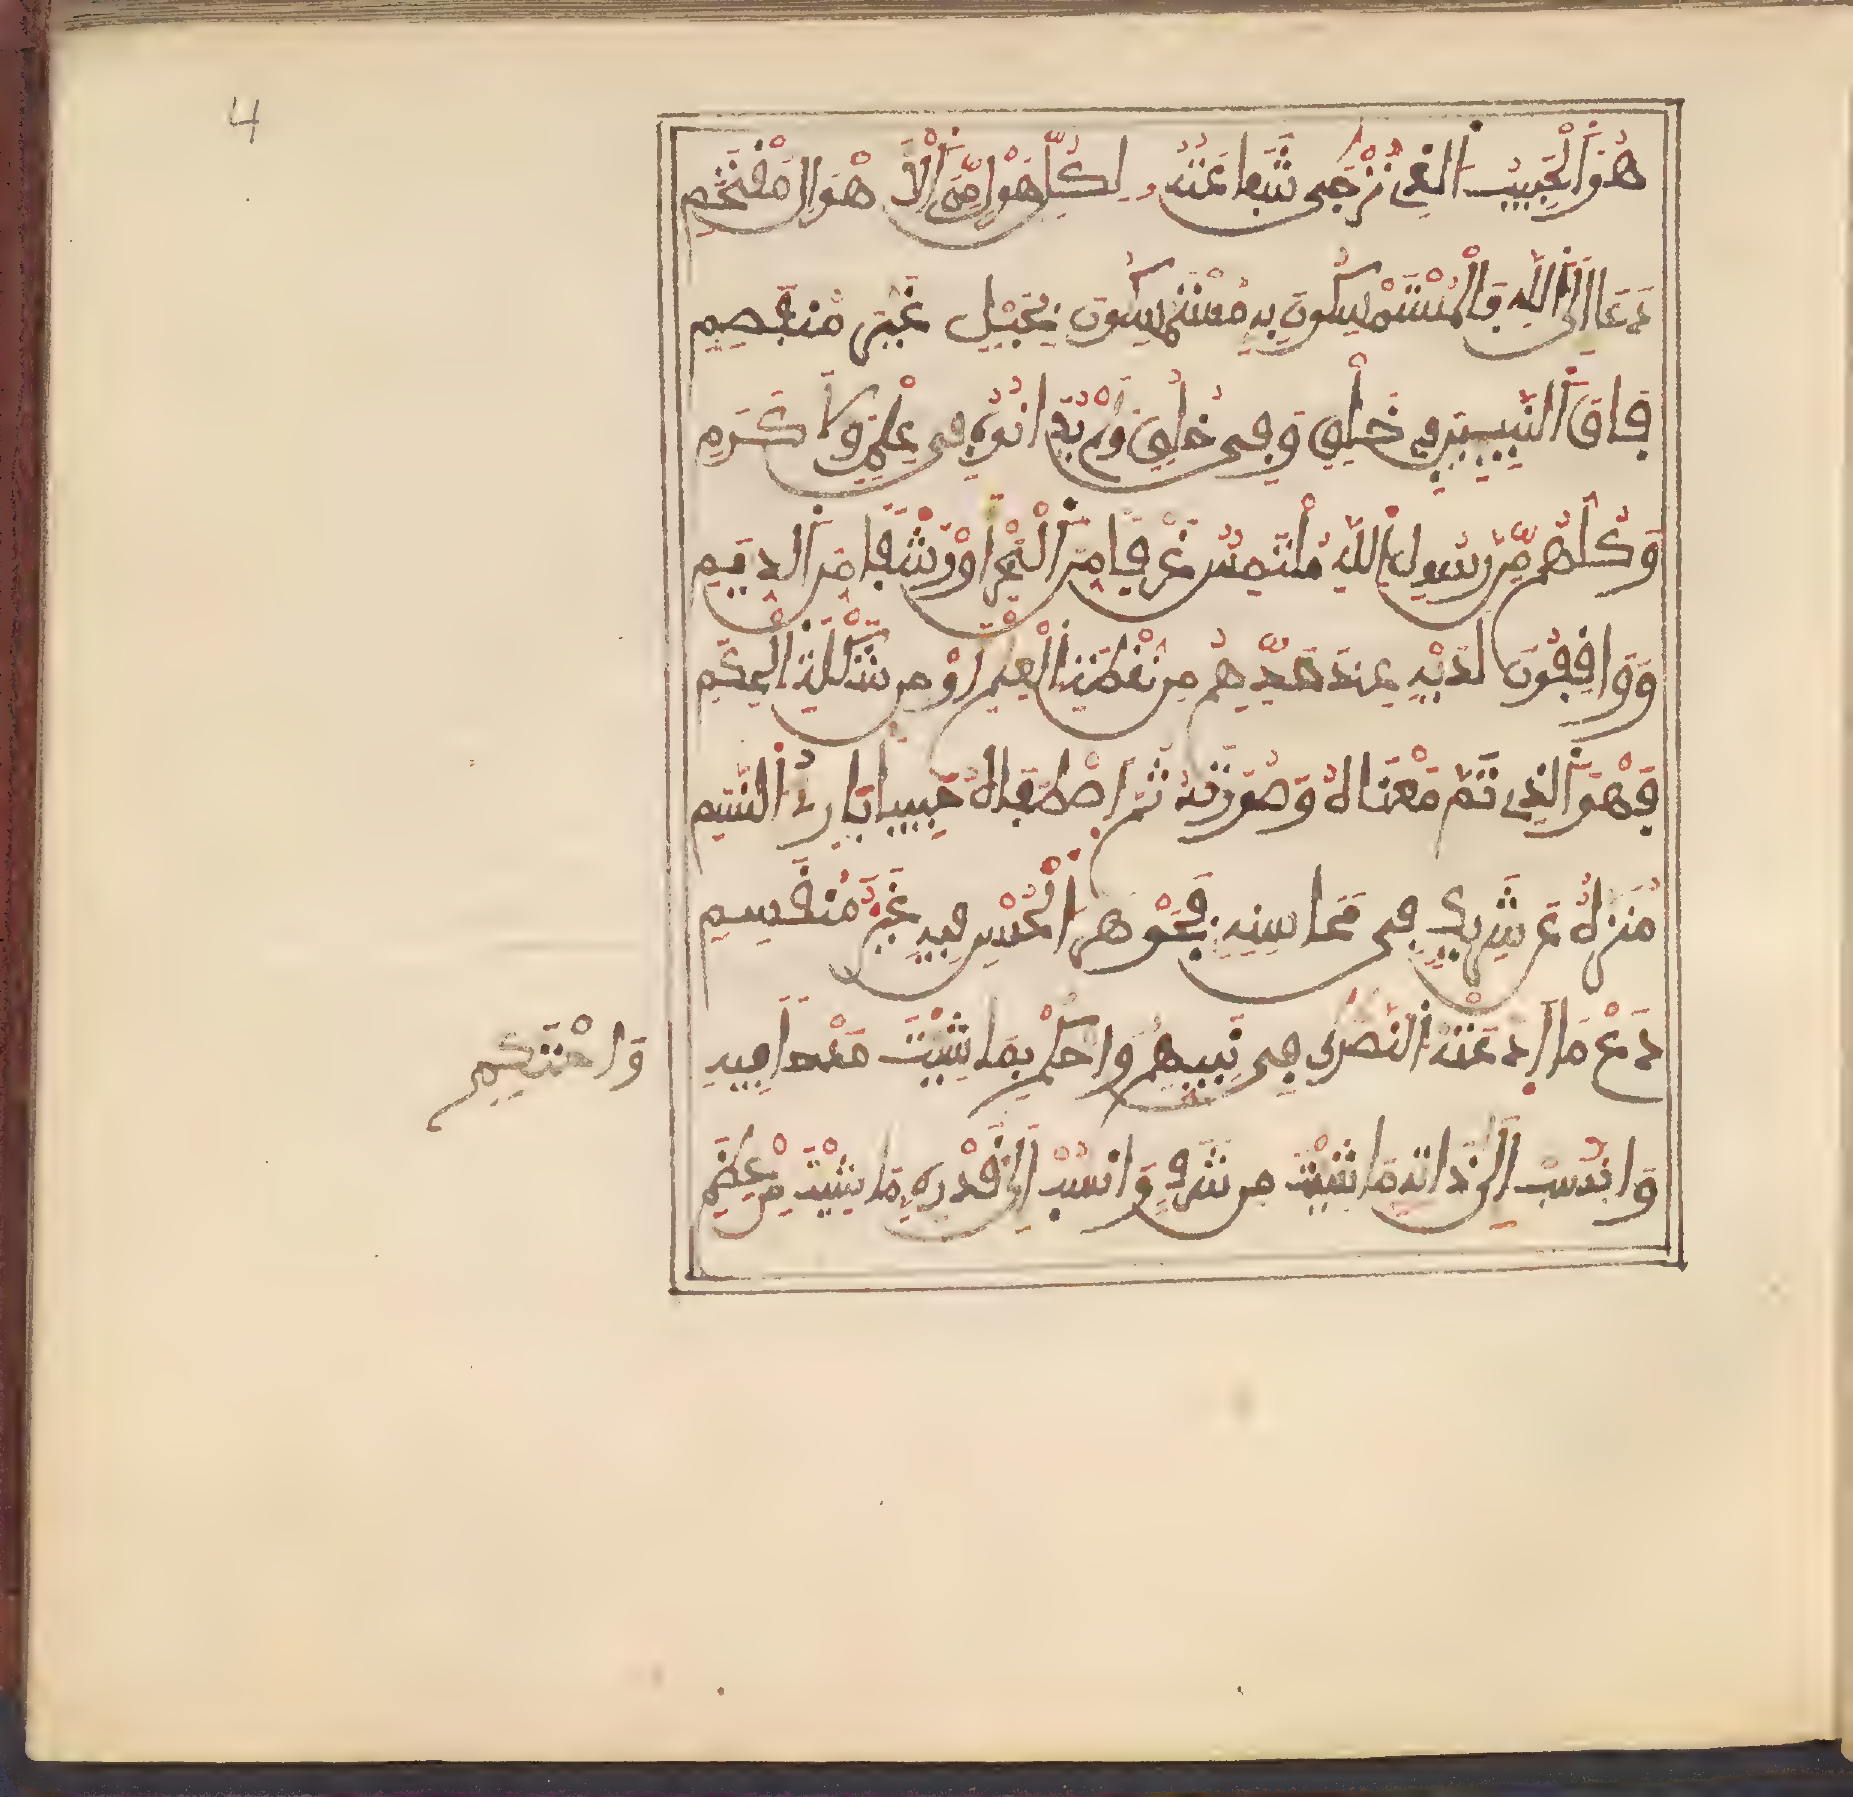 4
هُوَ الْحَبِيبُ الَّذِي تُرْجَى شَفَاعَتُهُ لِكُلِّ هَوْلٍ مِّنَ الْأَهْوَالِ مُقْتَحِمِ
دَعَا إِلَى اللَّهِ فَالْمُسْتَمْسِكُونَ بِهِ مُسْتَمْسِكُونَ بِحَبْلٍ غَيْرِ مُنفَصِمِ
فَاقَ النَّبِيئِينَ فِي خَلْقٍ وَفِي خُلُقٍ وَلَمْ يُدَانُوهُ فِي عِلْمٍ وَلَا كَرَمِ
وَكُلُّهُم مِّن رَّسُولِ اللَّهِ مُلْتَمِسٌ غَرْفًا مِنَ الْبَحْرِ أَوْ رَشْفًا مِنَ الدِّيَمِ
وَوَاقِفُونَ لَدَيْهِ عِندَ حَدِّهِمُ مِن نُقْطَةِ الْعِلْمِ أَوْ مِن شَكْلَةِ الْحِكَمِ
فَهْوَ الَّذِي تَمَّ مَعْنَاهُ وَصُورَتُهُ ثُمَّ اصْطَفَاهُ حَبِيبًا بَارِئُ النَّسَمِ
مُنَزَّهٌ عَن شَرِيكٍ فِي مَحَاسِنِهِ فَجَوْهَرُ الْحُسْنِ فِيهِ غَيْرُ مُنقَسِمِ
دَعْ مَا ادَّعَتْهُ النَّصَارَى فِي نَبِيِّهِمُ وَاحْكُمْ بِمَا شِئْتَ مَدْحًا فِيهِ
وَاحْتَكِمِ
وَانسُبْ إِلَى ذَاتِهِ مَا شِئْتَ مِن شَرَفٍ وَانسُبْ إِلَى قَدْرِهِ مَا شِئْتَ مِنْ عِظَمِ